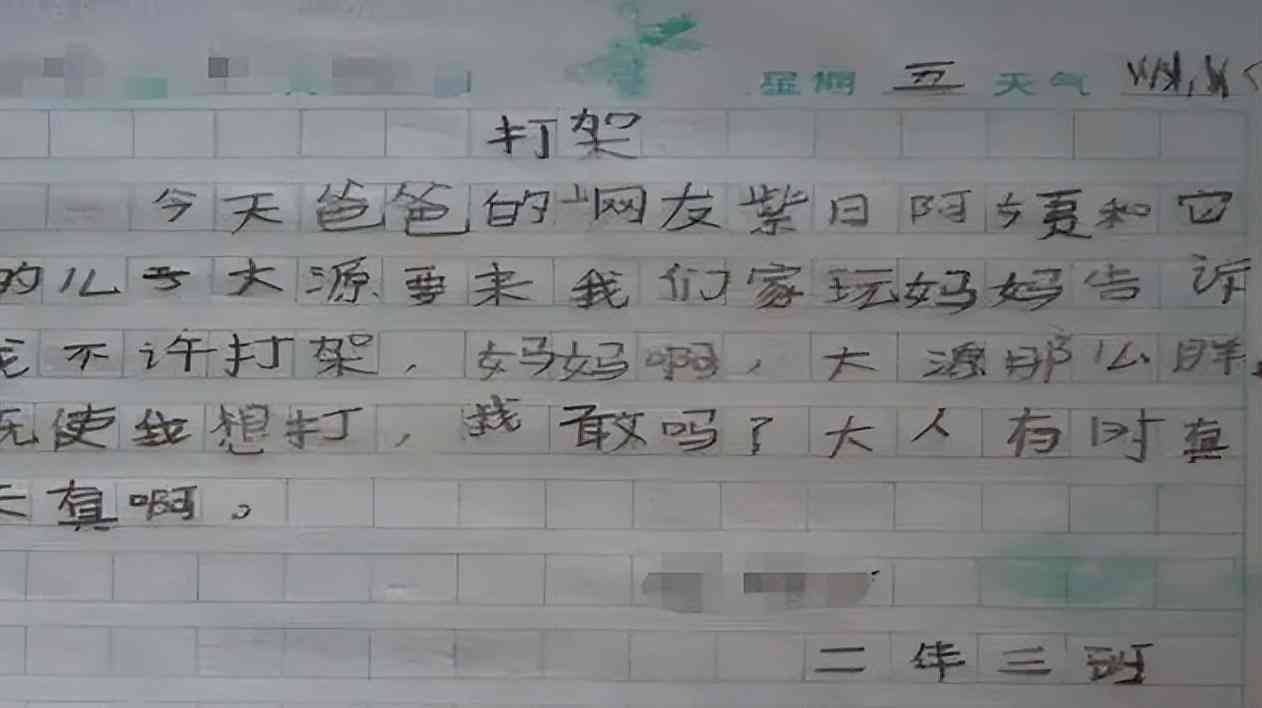 星期 五 天气
打架
今天爸爸的网友紫日阿姨和它
的儿子大源要来我们家玩妈妈告诉
我不许打架，妈妈啊，大源那么胖，
既使我想打，我敢吗？大人有时真
天真啊。
二年三班